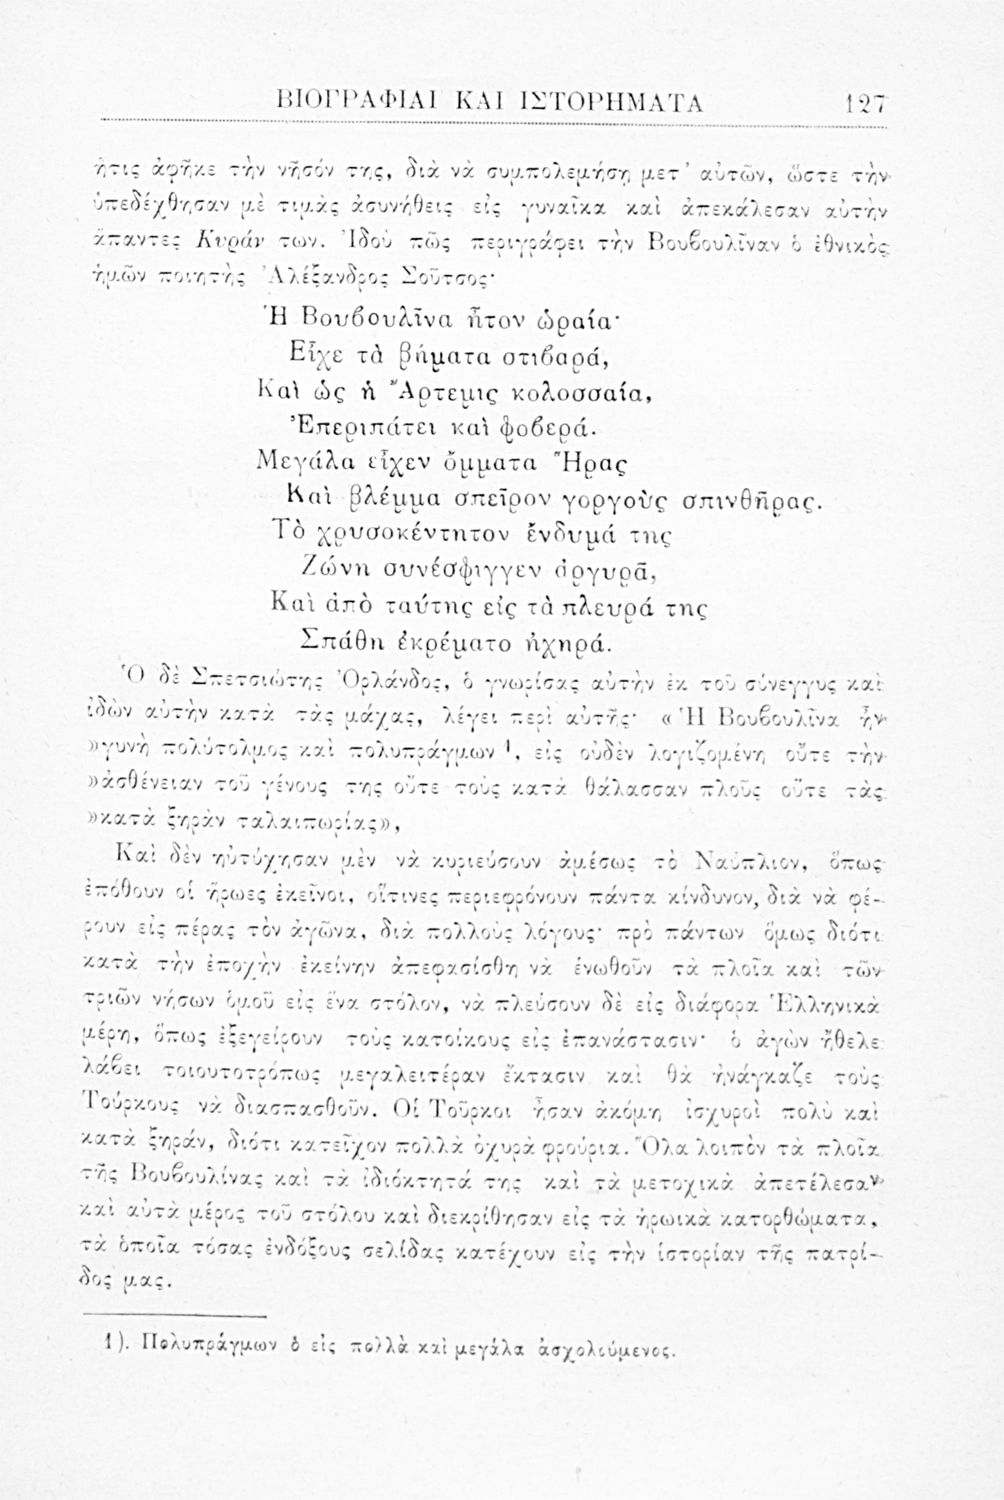 ΒΙΟΓΡΑΦΙΑΙ ΚΑΙ ΙΣΤΟΡΗΜΑΤΑ 127
ἥτις ἀφῆκε τὴν νῆσόν της, διὰ νὰ συμπολεμήσῃ μετ᾿ αὐτῶν, ὥστε τὴν
ὑπεδέχθησαν μὲ τιμὰς ἀσυνήθεις εἰς γυναῖκα καὶ ἀπεκάλεσαν αὐτὴν
ἅπαντες Κυράν των. Ἰδοὺ πῶς περιγράφει τὴν Βουβουλῖναν ὁ ἐθνικὸς
ἡμῶν ποιητὴς Ἀλέξανδρος Σοῦτσος·
Ἡ Βουβουλῖνα ἦτον ὡραία·
Εἶχε τὰ βήματα στιβαρά,
Καὶ ὡς ἡ Ἄρτεμις κολοσσαία,
Ἐπεριπάτει καὶ φοβερά.
Μεγάλα εἶχεν ὄμματα Ἥρας
Καὶ βλέμμα σπεῖρον γοργοὺς σπινθῆρας.
Τὸ χρυσοκέντητον ἔνδυμά της
Ζώνη συνέσφιγγεν ἀργυρᾶ,
Καὶ ἀπὸ ταύτης εἰς τὰ πλευρά της
Σπάθη ἐκρέματο ἠχηρά.
Ὁ δὲ Σπετσιώτης Ὀρλάνδος, ὁ γνωρίσας αὐτὴν ἐκ τοῦ σύνεγγυς καὶ
ἰδὼν αὐτὴν κατὰ τὰς μάχας, λέγει περὶ αὐτῆς· «Ἡ Βουβουλῖνα ἦν
»γυνὴ πολύτολμος καὶ πολυπράγμων ¹, εἰς οὐδὲν λογιζομένη οὔτε τὴν
»ἀσθένειαν τοῦ γένους της οὔτε τοὺς κατὰ θάλασσαν πλοῦς οὔτε τὰς
»κατὰ ξηρὰν ταλαιπωρίας»,
Καὶ δὲν ηὐτύχησαν μὲν νὰ κυριεύσουν ἀμέσως τὸ Ναύπλιον, ὅπως
ἐπόθουν οἱ ἥρωες ἐκεῖνοι, οἵτινες περιεφρόνουν πάντα κίνδυνον, διὰ νὰ φέ-
ρουν εἰς πέρας τὸν ἀγῶνα, διὰ πολλοὺς λόγους· πρὸ πάντων ὅμως διότι
κατὰ τὴν ἐποχὴν ἐκείνην ἀπεφασίσθη νὰ ἑνωθοῦν τὰ πλοῖα καὶ τῶν
τριῶν νήσων ὁμοῦ εἰς ἕνα στόλον, νὰ πλεύσουν δὲ εἰς διάφορα Ἑλληνικὰ
μέρη, ὅπως ἐξεγείρουν τοὺς κατοίκους εἰς ἐπανάστασιν· ὁ ἀγὼν ἤθελε
λάβει τοιουτοτρόπως μεγαλειτέραν ἔκτασιν καὶ θὰ ἠνάγκαζε τοὺς
Τούρκους νὰ διασπασθοῦν. Οἱ Τοῦρκοι ἦσαν ἀκόμη ἰσχυροὶ πολὺ καὶ
κατὰ ξηράν, διότι κατεῖχον πολλὰ ὀχυρὰ φρούρια. Ὅλα λοιπὸν τὰ πλοῖα
τῆς Βουβουλίνας καὶ τὰ ἰδιόκτητά της καὶ τὰ μετοχικὰ ἀπετέλεσαν
καὶ αὐτὰ μέρος τοῦ στόλου καὶ διεκρίθησαν εἰς τὰ ἡρωικὰ κατορθώματα,
τὰ ὁποῖα τόσας ἐνδόξους σελίδας κατέχουν εἰς τὴν ἱστορίαν τῆς πατρί-
δος μας.
1). Πολυπράγμων ὁ εἰς πολλὰ καὶ μεγάλα ἀσχολούμενος.